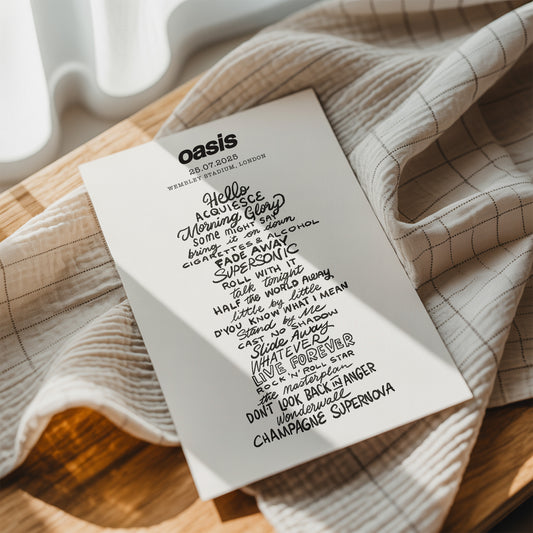 oasis
25.07.2025
WEMBLEY STADIUM, LONDON
Hello
ACQUIESCE
Morning Glory
SOME MIGHT SAY
bring it on down
CIGARETTES & ALCOHOL
FADE AWAY
SUPERSONIC
ROLL WITH IT
talk tonight
HALF THE WORLD AWAY
little by little
D'YOU KNOW WHAT I MEAN
Stand by Me
CAST NO SHADOW
Slide Away
WHATEVER
LIVE FOREVER
ROCK 'N' ROLL STAR
the masterplan
DON'T LOOK BACK IN ANGER
Wonderwall
CHAMPAGNE SUPERNOVA